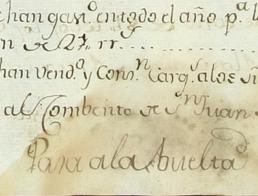 han gan.º en todo el año p.ª l
n de 27 rr.s
han Vend.º y Cons.n Carg. a los
al Combento de S.n Juan
Pasa a la buelta